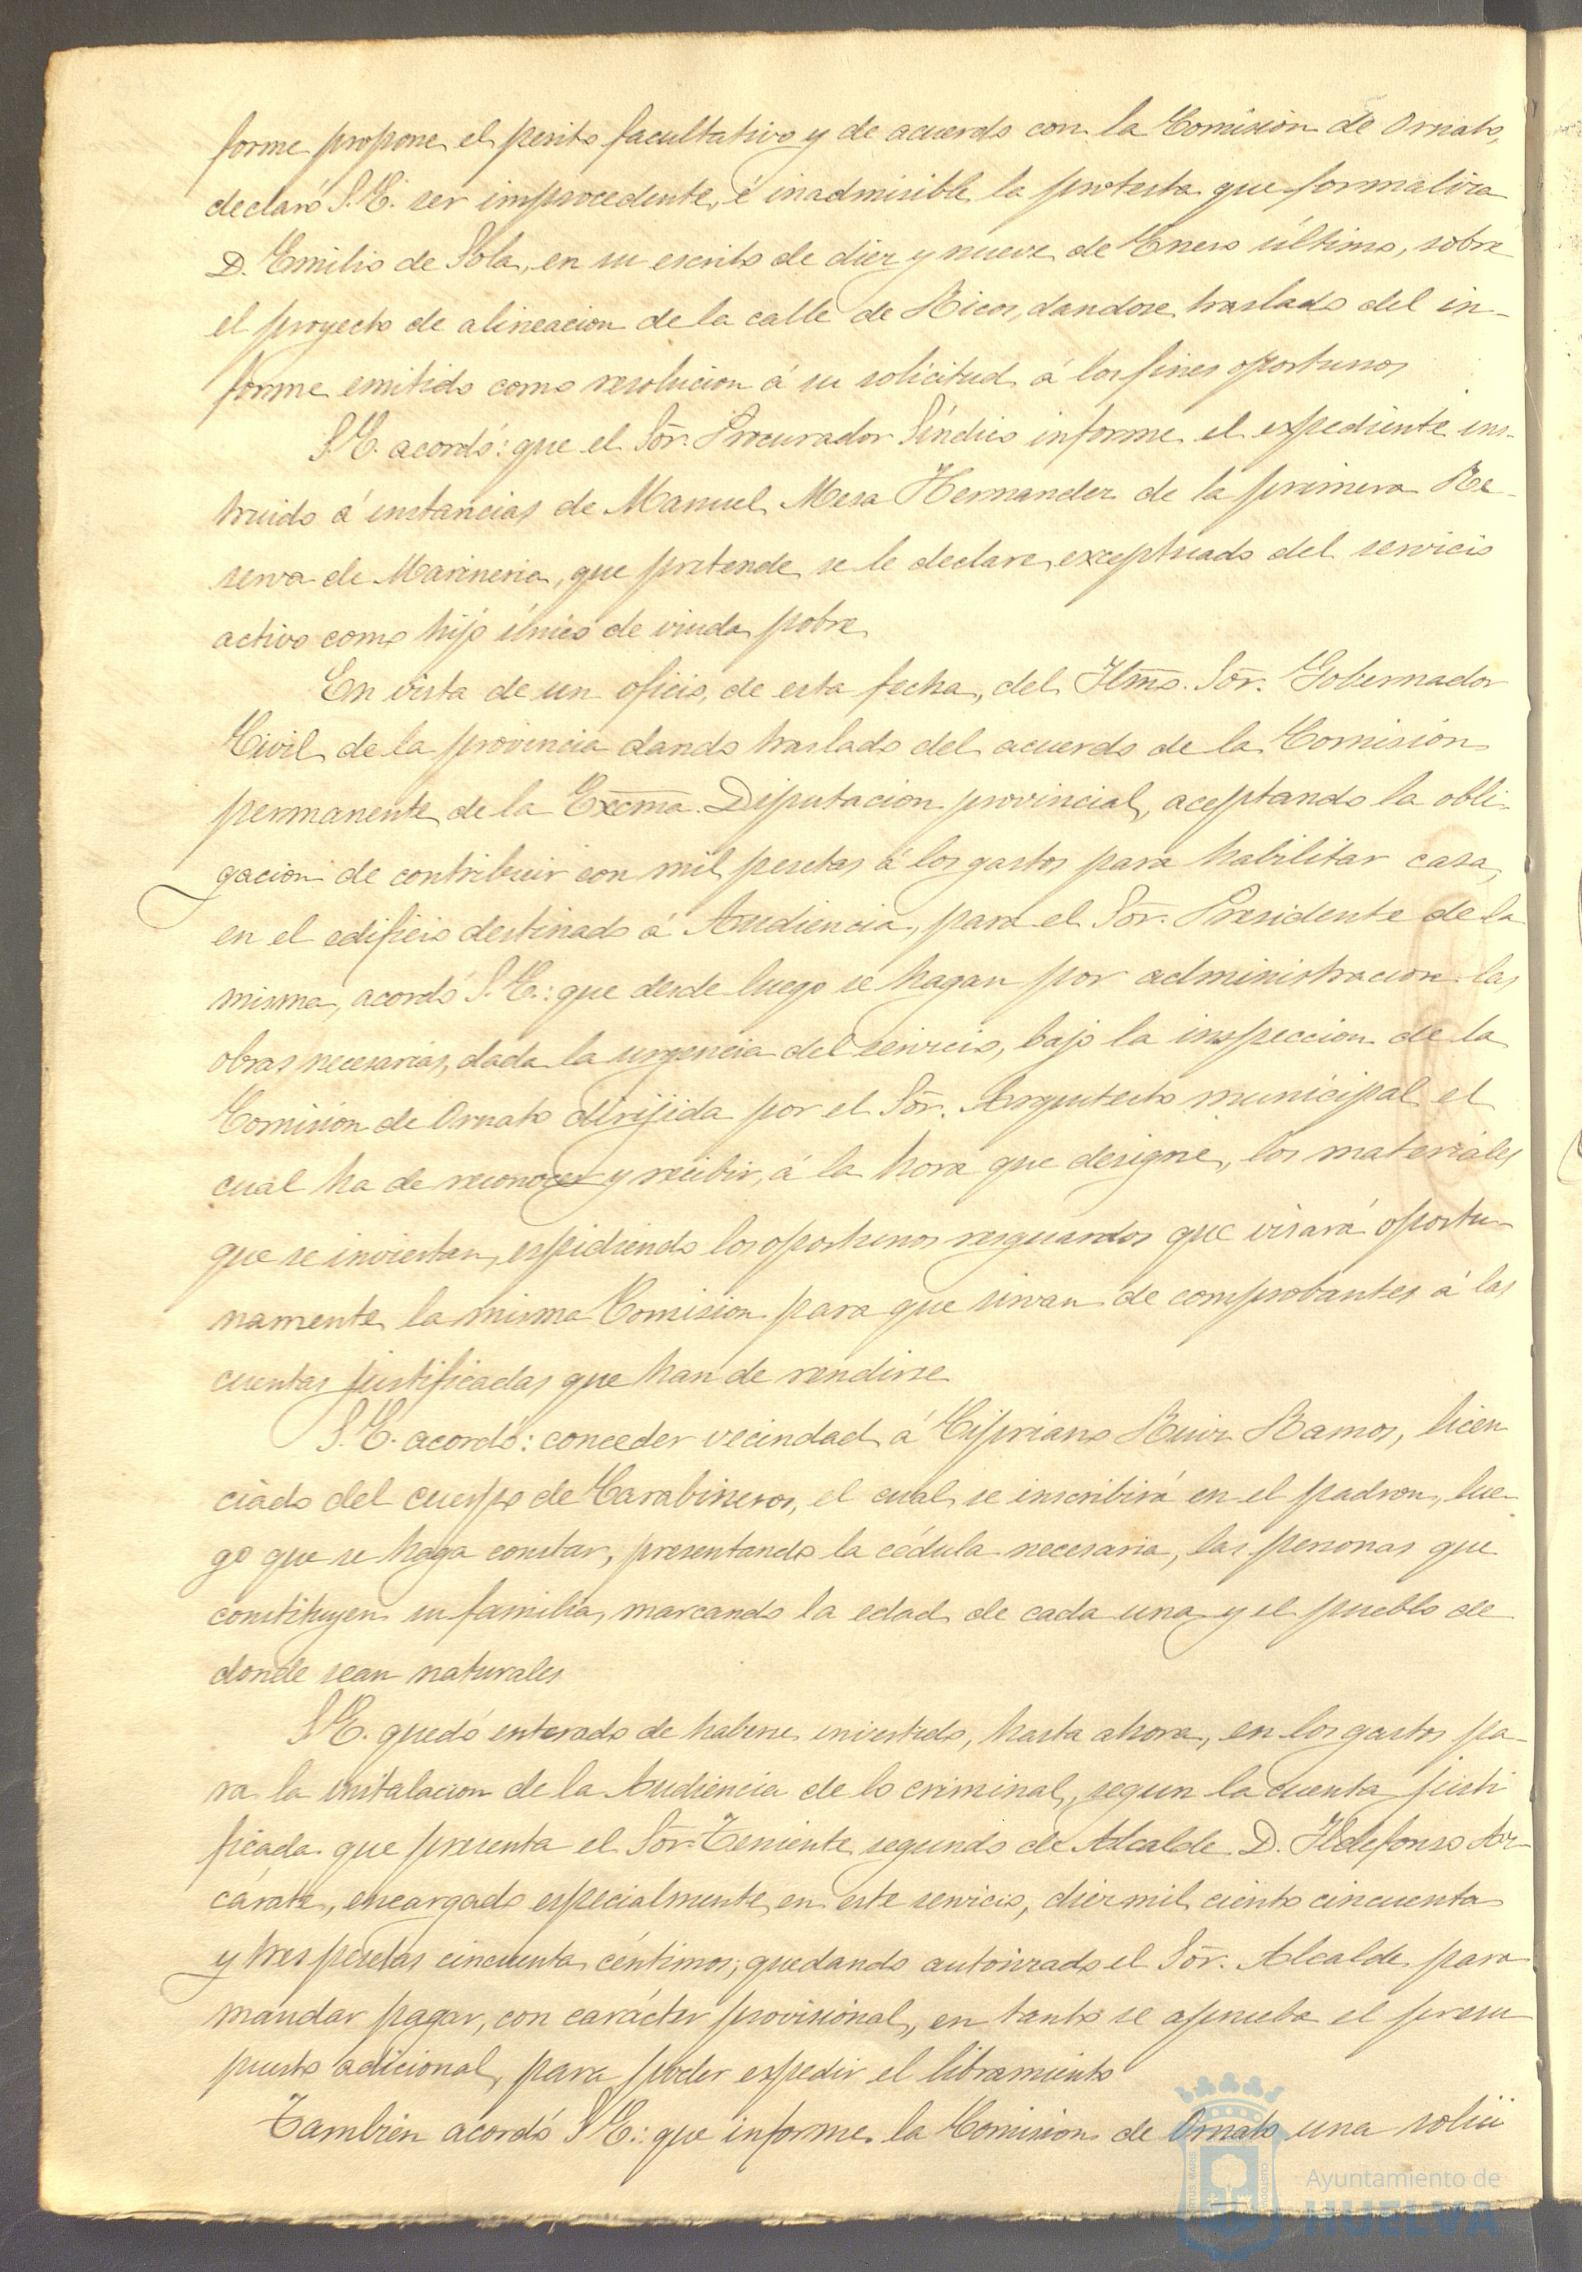 forme propone el perito facultativo y de acuerdo con la Comision de Ornato,
declaró S.E. ser improcedente é inadmisible la protesta que formaliza
D. Emilio de Sola, en su escrito de diez y nueve de Enero último, sobre
el proyecto de alineacion de la calle de Ricos, dandose traslado del in-
forme emitido como resolucion á su solicitud á los fines oportunos
S.E. acordó: que el Sor. Procurador Síndico informe el expediente ins-
truido á instancias de Manuel Mesa Hernandez de la primera Re-
serva de Marineria, que pretende se le declare exceptuado del servicio
activo como hijo único de viuda pobre
En vista de un oficio, de esta fecha, del Iltmo. Sor. Gobernador
Civil de la provincia dando traslado del acuerdo de la Comision
permanente de la Excma. Diputacion provincial, aceptando la obli-
gacion de contribuir con mil pesetas á los gastos para habilitar casa,
en el edificio destinado á Audiencia, para el Sor. Presidente de la
misma, acordó S.E.: que desde luego se hagan por administracion las
obras necesarias, dada la urgencia del servicio, bajo la inspeccion de la
Comision de Ornato dirijida por el Sor. Arquitecto municipal el
cual ha de reconocer y recibir, á la hora que designe, los materiales
que se inviertan, espidiendo los oportunos resguardos que visará oportu-
namente la misma Comision para que sirvan de comprobantes á las
cuentas justificadas que han de rendirse
S.E. acordó: conceder vecindad á Cipriano Ruiz Ramos, licen
ciado del cuerpo de Carabineros, el cual se inscribirá en el padron, lue-
go que se haga constar, presentando la cédula necesaria, las personas que
constituyen su familia, marcando la edad de cada una y el pueblo de
donde sean naturales
S.E. quedó enterado de haberse invertido, hasta ahora, en los gastos pa-
ra la instalacion de la Audiencia de lo criminal, segun la cuenta justi
ficada que presenta el Sor. Teniente segundo de Alcalde D. Ildefonso Az-
cárate, encargado especialmente en este servicio, diez mil ciento cincuenta
y tres pesetas cincuenta céntimos; quedando autorizado el Sor. Alcalde para
mandar pagar, con carácter provisional, en tanto se aprueba el presu
puesto adicional, para poder expedir el libramiento
Tambien acordó S.E.: que informe la Comision de Ornato una solici
Ayuntamiento de
HUELVA